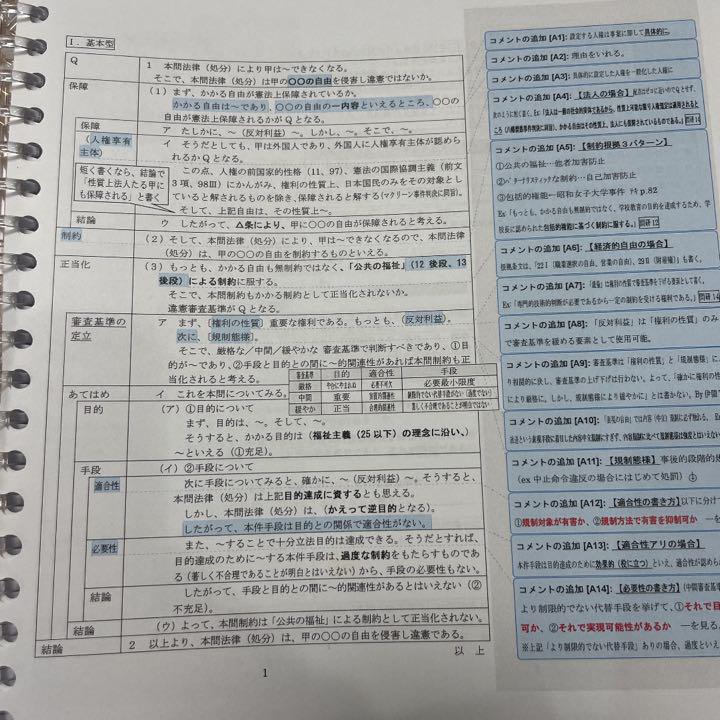 Ⅰ．基本型
Q
1 本問法律（処分）により甲は～できなくなる。
そこで、本問法律（処分）は甲の〇〇の自由を侵害し違憲ではないか。
保障
（1）まず、かかる自由が憲法上保障されているか。
かかる自由は～であり、〇〇の自由の一内容といえるところ、〇〇の
自由が憲法上保障されるかがQとなる。
保障
（人権享有
主体）
ア たしかに、～（反対利益）～。しかし、～。そこで、～。
イ そうだとしても、甲は外国人であり、外国人に人権享有主体が認めら
れるかQとなる。
この点、人権の前国家的性格（11、97）、憲法の国際協調主義（前文
3項、98Ⅲ）にかんがみ、権利の性質上、日本国民のみをその対象と
していると解されるものを除き、保障されると解する（マクリーン事件判決に同旨）。
そして、上記自由は、その性質上～。
短く書くなら、結論で
「性質上法人たる甲に
も保障される」と書く
結論
ウ したがって、△条により、甲に〇〇の自由が保障されると考える。
制約
（2）そして、本問法律（処分）により、甲は～できなくなるので、本問法律
（処分）は、甲の〇〇の自由を制約するものといえる。
正当化
（3）もっとも、かかる自由も無制約ではなく、「公共の福祉」（12 後段、13
後段）による制約に服する。
そこで、本問制約もかかる制約として正当化されないか。
違憲審査基準がQとなる。
審査基準の
定立
ア まず、〔権利の性質〕重要な権利である。もっとも、〈反対利益〉。
次に、〔規制態様〕。
そこで、厳格な／中間／緩やかな 審査基準で判断すべきであり、①目
的が～であり、②手段と目的との間に～的関連性があれば本問制約も正
当化されると考える。
審査基準 目的 適合性 手段
厳格 やむにやまれぬ 必要不可欠 必要最小限度
中間 重要 実質的関連性
緩やか 正当 合理的関連性 著しく不合理であることが明白ではない
あてはめ
イ これを本問についてみる。
目的
（ア）①目的について
まず、目的は、～。そして、～。
そうすると、かかる目的は（福祉主義（25 以下）の理念に沿い、）
～といえる（①充足）。
手段
（イ）②手段について
適合性
次に手段についてみると、確かに、～（反対利益）～。そうすると、
本問法律（処分）は上記目的達成に資するとも思える。
しかし、本問法律（処分）は、（かえって逆目的となる）。
したがって、本件手段は目的との関係で適合性がない。
必要性
また、～することで十分立法目的は達成できる。そうだとすれば、
目的達成のために～する本件手段は、過度な制約をもたらすものであ
る（著しく不合理であることが明白とはいえない）から、手段の必要性もない。
結論
したがって、手段と目的との間に～的関連性があるとはいえない（②
不充足）。
結論
（ウ）よって、本問制約は「公共の福祉」による制約として正当化されない。
結論
2 以上より、本問法律（処分）は、甲の〇〇の自由を侵害し違憲である。
以 上
1
コメントの追加 [A1]: 設定する人権は事案に即して具体的に。
コメントの追加 [A2]: 理由をいれる。
コメントの追加 [A3]: 具体的に設定した人権を一般化した人権に
コメントの追加 [A4]: 【法人の場合】
コメントの追加 [A5]: 【制約根拠3パターン】
①公共の福祉…他者加害防止
②パターナリスティックな制約…自己加害防止
③包括的権能…昭和女子大学事件 サブp.82
Ex「もっとも、かかる自由も無制約ではなく、学校教育の目的を達成するため、学
校長に認められた包括的権能に基づく制約に服する。」問研12
コメントの追加 [A6]: 【経済的自由の場合】
根拠条文は、「22Ⅰ（職業選択の自由、営業の自由）、29Ⅱ（財産権）」も書く。
コメントの追加 [A7]:
Ex「専門的技術的判断が必要であるから一定の制約を受ける権利である。」
コメントの追加 [A8]: 「反対利益」は「権利の性質」のみ
で審査基準を緩める要素として使用可能。
コメントの追加 [A9]: 審査基準は「権利の性質」と「規制態様」に
コメントの追加 [A10]:
コメントの追加 [A11]: 【規制態様】事後的段階的規
(ex 中止命令違反の場合にはじめて処罰)
コメントの追加 [A12]: 【適合性の書き方】以下に分け
①規制対象が有害か、②規制方法で有害を抑制可か
コメントの追加 [A13]: 【適合性アリの場合】
本件手段は目的達成のために効果的（役に立つ）といえ、適合性が認めら
コメントの追加 [A14]: 【必要性の書き方】（中間審査基
より制限的でない代替手段を挙げて、①それで目
可か、②それで実現可能性があるか ―を見る。
※上記「より制限的でない代替手段」ありの場合、過度といえ